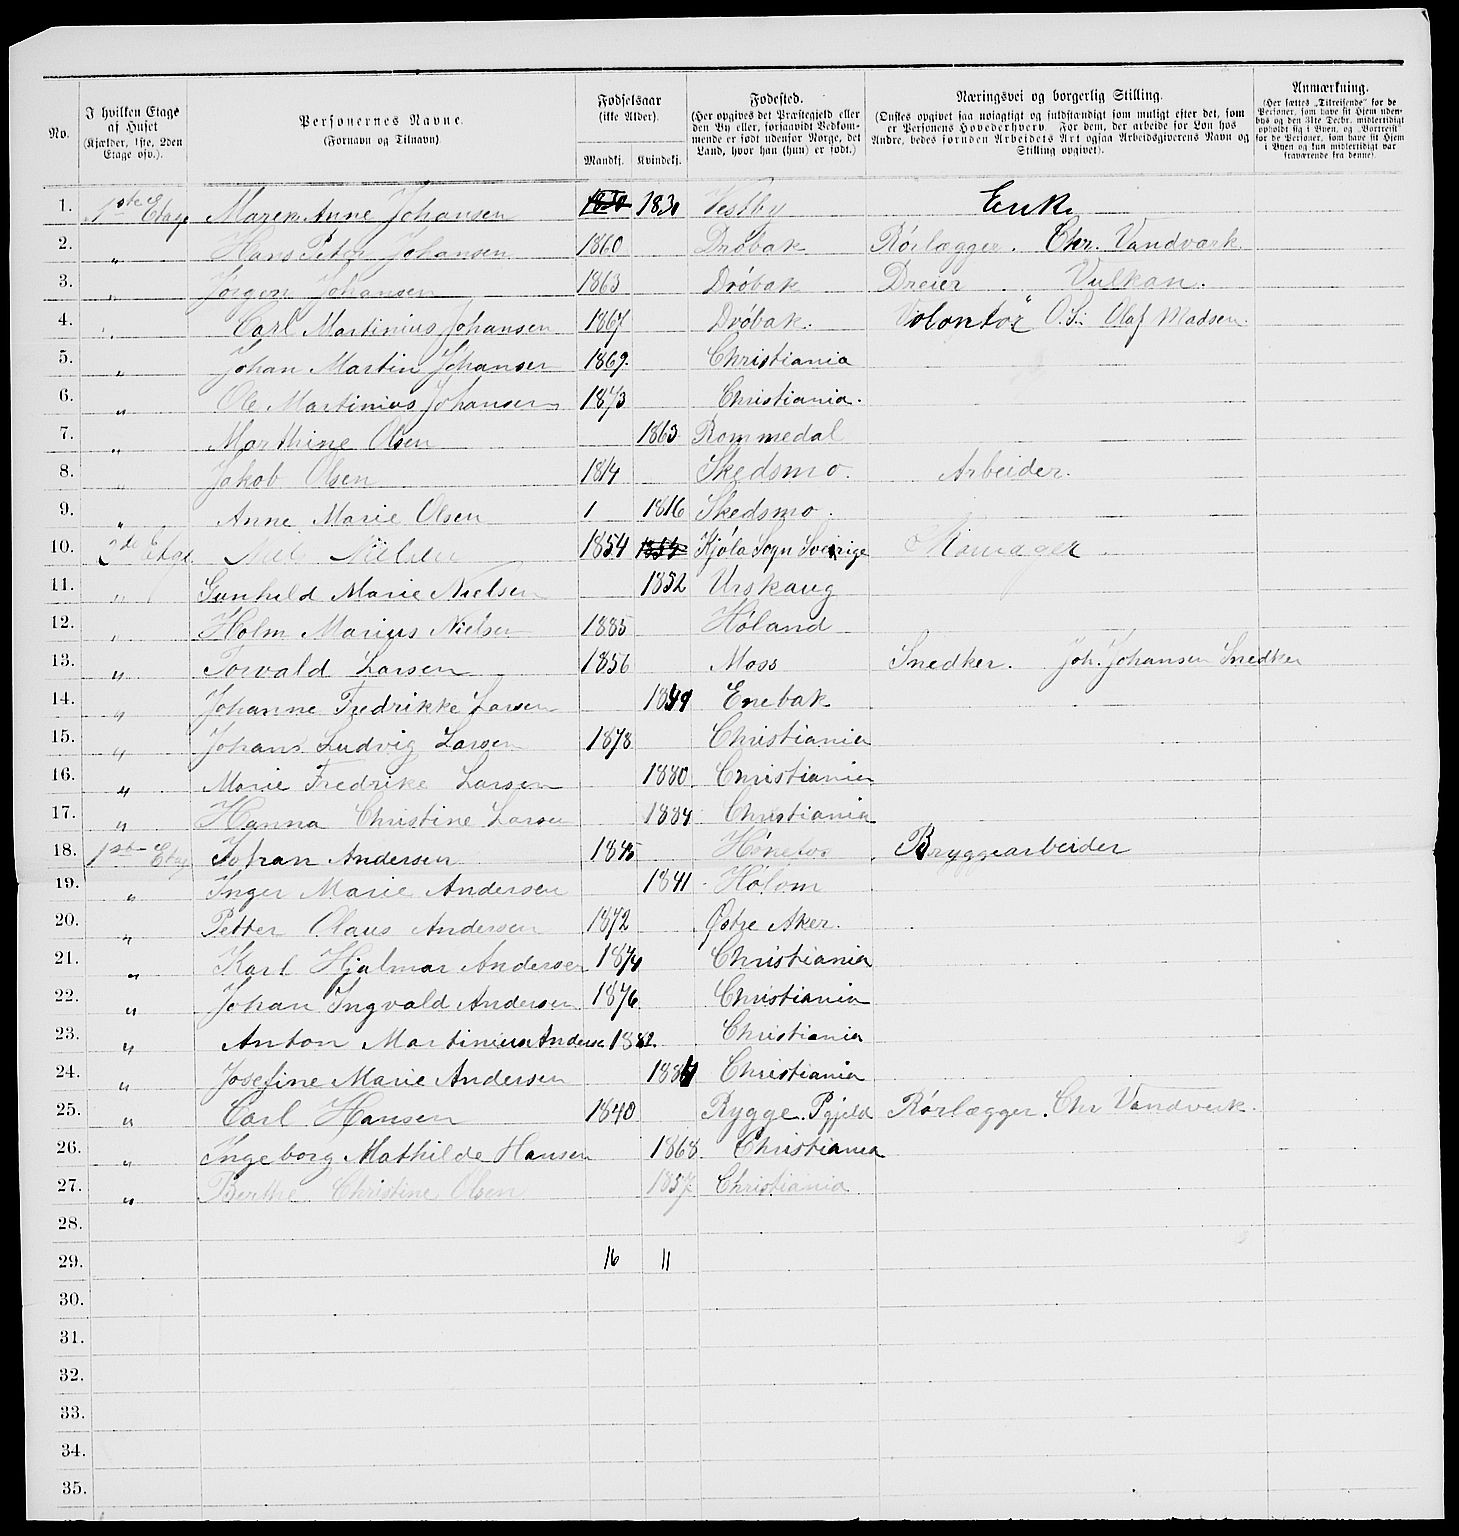 No. I hvilken Etage af Huset (Kjælder, 1ste, 2den Etage osv.). Personernes Navne. (Fornavn og Tilnavn). Fødselsaar (ikke Alder). Mandkj. Kvindekj. Fødested. (Her opgives det Præstegjeld eller den By eller, forsaavidt Vedkommende er født udenfor Norge, det Land, hvor han (hun) er født.) Næringsvei og borgerlig Stilling. (Ønskes opgivet saa nøiagtigt og fuldstændigt som muligt efter det, som er Personens Hovederhverv. For dem, der arbeide for Løn hos Andre, bedes foruden Arbeidets Art ogsaa Arbeidsgiverens Navn og Stilling opgivet). Anmærkning. (Her sættes „Tilreisende" for de Personer, som have sit Hjem udenbys og den 31te Decbr. midlertidigt opholdt sig i Byen, og „Bortreist" for de Personer, som have sit Hjem i Byen og kun midlertidigt var fraværende fra denne).
1. 1ste Etage Maren Anne Johansen 1830 1830 Vestby Enke
2. " Hans Peter Johansen 1860 Drøbak Rørlægger. Chr. Vandværk
3. " Jørgen Johansen 1863 Drøbak Dreier Vulkan.
4. " Carl Martinius Johansen 1867 Drøbak. Volontør O. S. Olaf Madsen.
5. " Johan Martin Johansen 1869. Christiania
6. " Ole Martinius Johansen 1873 Christiania.
7. " Marthine Olsen 1863 Rommedal
8. " Jakob Olsen 1814 Skedsmo. Arbeider.
9. " Anne Marie Olsen 1 1816 Skedsmo.
10. 2de Etage Nils Nielsen 1854 1854 Kjöla Sogn Sverige
11. " Gunhild Marie Nielsen 1852 Urskaug
12. " Holm Marius Nielsen 1885 Høland
13. " Torvald Larsen 1856 Moss Snedker. Joh. Johansen Snedker
14. " Johanne Fredrikke Larsen 1849 Enebak
15. " Johans Ludvig Larsen 1878 Christiania
16. " Marie Fredrike Larsen 1880. Christiania
17. " Hanna Christine Larsen 1884 Christiania
18. 1ste Etag Johan Andersen 1845 Hønefos Bryggearbeider
19. " Inger Marie Andersen 1841 Holom
20. " Petter Olaus Andersen 1872 Østre Aker.
21. " Karl Hjalmar Andersen 1874 Christiania
22. " Johan Ingvald Andersen 1876 Christiania
23. " Anton Martinius Anderse 1882. Christiania
24. " Josefine Marie Andersen Christiania
25. " Carl Hansen 1840 Rygge. Pgjeld Rørlægger. Chr Vandverk.
26. " Ingeborg Mathilde Hansen 1868. Christiania
27. " Berthe Christine Olsen 1857 Christiania
28.
29. 16 11
30.
31.
32.
33.
34.
35.